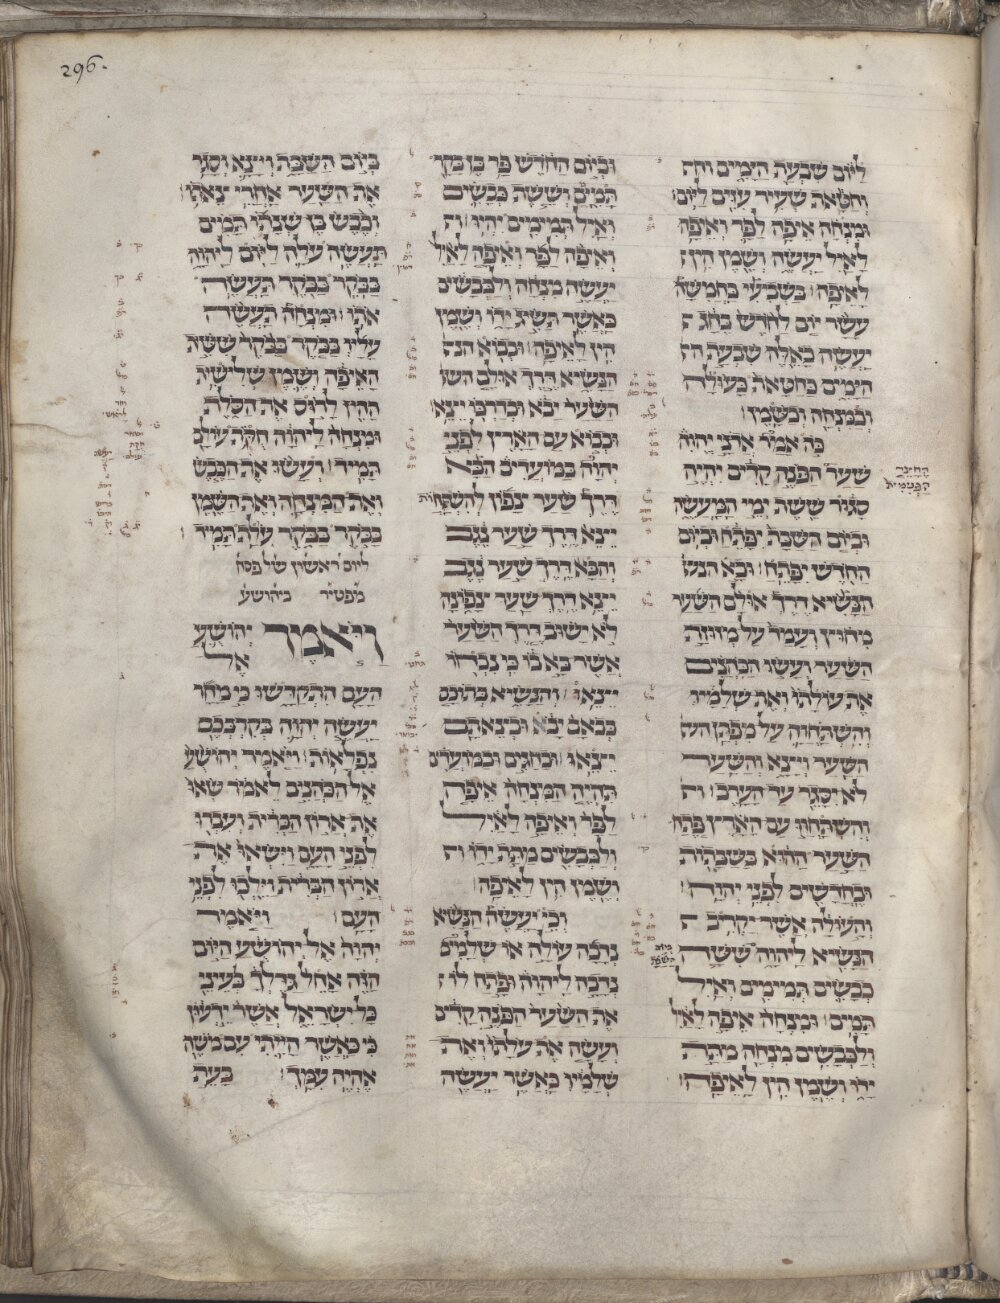 296.
ליום שבעת הימים וח
וחטאת שעיר עזים ליום
ומנחה איפה לפר ואיפה
לאיל יעשה ושמן הין
לאיפה בשביעי בחמשה
עשר יום לחדש בחג ה
יעשה כאלה שבעת הי
הימים כחטאת כעולה
וכמנחה וכשמן
כה אמר אדני יהוה
שער הפנה קדים יהיה
סגור ששת ימי המעשה
וביום השבת יפתח וביום
החדש יפתח ובא הנש
הנשיא דרך אולם השער
מחוץ ועמד על מזוזה
השער ועשו הכהנים
את עולתו ואת שלמיו
והשתחוה על מפתן הש
השער ויצא והשער
לא יסגר עד הערב וה
והשתחוו עם הארץ פתח
השער ההוא בשבתות
ובחדשים לפני יהוה
והעולה אשר יקריב ה
הנשיא ליהוה ששה
כבשים תמימים ואיל
תמים ומנחה איפה לאיל
ולכבשים מנחה מתת
ידו ושמן הין לאיפה
החצר
הפנימית
ביום
השבת
וביום החדש פר בן בקר
תמים וששה כבשים
ואיל תמימים יהיו וא
ואיפה לפר ואיפה לאיל
יעשה מנחה ולכבשים
כאשר תשיג ידו ושמן
הין לאיפה ובבוא הנש
הנשיא דרך אולם השע
השער יבא ובדרכו יצא
ובבוא עם הארץ לפני
יהוה במועדים הבא
דרך שער צפון להשתחות
יצא דרך שער נגב
והבא דרך שער נגב
יצא דרך שער צפונה
לא ישוב דרך השער
אשר בא בו כי נכחו
יצאו והנשיא בתוכם
בבואם יבוא ובצאתם
יצאו ובחגים ובמועדים
תהיה המנחה איפה
לפר ואיפה לאיל
ולכבשים מתת ידו וש
ושמן הין לאיפה
וכי יעשה הנשיא
נדבה עולה או שלמים
נדבה ליהוה ופתח לו
את השער הפנה קדים
ועשה את עלתו ואת
שלמיו כאשר יעשה
ביום השבת ויצא וסגר
את השער אחרי צאתו
וכבש בן שנתו תמים
תעשה עלה ליום ליהוה
בבקר בבקר תעשה
אתו ומנחה תעשה
עליו בבקר בבקר ששית
האיפה ושמן שלישית
ההין לרוס את הסלת
ומנחה ליהוה חקת עולם
תמיד ועשו את הכבש
ואת המנחה ואת השמן
בבקר בבקר עלת תמיד
ליום ראשון של פסח
מפטיר ביהושע
ויאמר יהושע
אל
העם התקדשו כי מחר
יעשה יהוה בקרבכם
נפלאות ויאמר יהושע
אל הכהנים לאמר שאו
את ארון הברית ועברו
לפני העם וישאו את
ארון הברית וילכו לפני
העם ויאמר
יהוה אל יהושע היום
הזה אחל גדלך בעיני
כל ישראל אשר ידעון
כי כאשר הייתי עם משה
אהיה עמך כעת